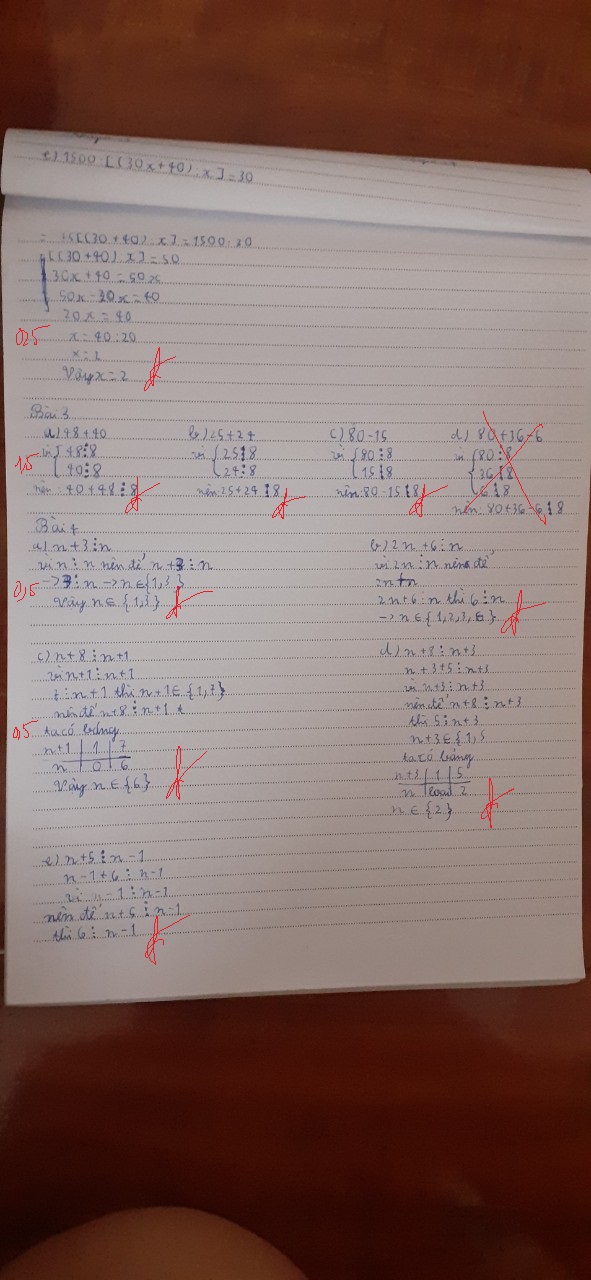 e) 1500 : [(30x + 40) : x] = 30
= [(30 + 40) : x] = 1500 : 30
[(30 + 40) : x] = 50
30x + 40 = 50x
50x - 30x = 40
20x = 40
0,25
x = 40 : 20
x = 2
Vậy x = 2
Bài 3
a) 48 + 40
vì { 48 ⋮ 8
40 ⋮ 8
nên 40 + 48 ⋮ 8
1,5
b) 25 + 24
vì { 25 ⋮̸ 8
24 ⋮ 8
nên 25 + 24 ⋮̸ 8
c) 80 - 15
vì { 80 ⋮ 8
15 ⋮̸ 8
nên 80 - 15 ⋮̸ 8
d) 80 + 36 - 6
vì { 80 ⋮ 8
36 ⋮̸ 8
6 ⋮̸ 8
nên 80 + 36 - 6 ⋮̸ 8
Bài 4
a) n + 3 ⋮ n
vì n ⋮ n nên để n + 3 ⋮ n
-> 3 ⋮ n -> n ∈ {1, 3}
0,5
Vậy n ∈ {1, 3}
b) 2n + 6 ⋮ n
vì 2n ⋮ n nên để
2n + 6 ⋮ n thì 6 ⋮ n
-> n ∈ {1, 2, 3, 6}
c) n + 8 ⋮ n + 1
vì n + 1 ⋮ n + 1
7 ⋮ n + 1 thì n + 1 ∈ {1, 7}
nên để n + 8 ⋮ n + 1
0,5
ta có bảng
n + 1 | 1 | 7
n | 0 | 6
Vậy n ∈ {6}
d) n + 8 ⋮ n + 3
n + 3 + 5 ⋮ n + 3
vì n + 3 ⋮ n + 3
nên để n + 8 ⋮ n + 3
thì 5 ⋮ n + 3
n + 3 ∈ {1, 5
ta có bảng
n + 3 | 1 | 5
n | loại | 2
n ∈ {2}
e) n + 5 ⋮ n - 1
n - 1 + 6 ⋮ n - 1
vì n - 1 ⋮ n - 1
nên để n + 5 ⋮ n - 1
thì 6 ⋮ n - 1